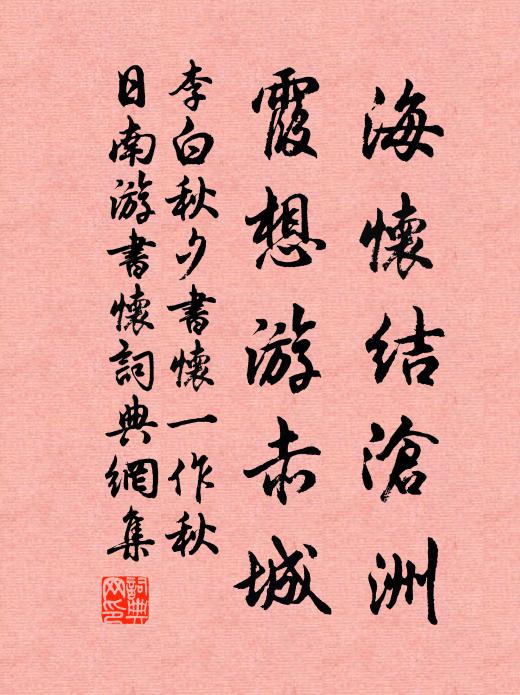 海懷結滄洲
霞想游赤城
李白秋夕書懷一作秋
日南游書懷詞典網集
詞典网印